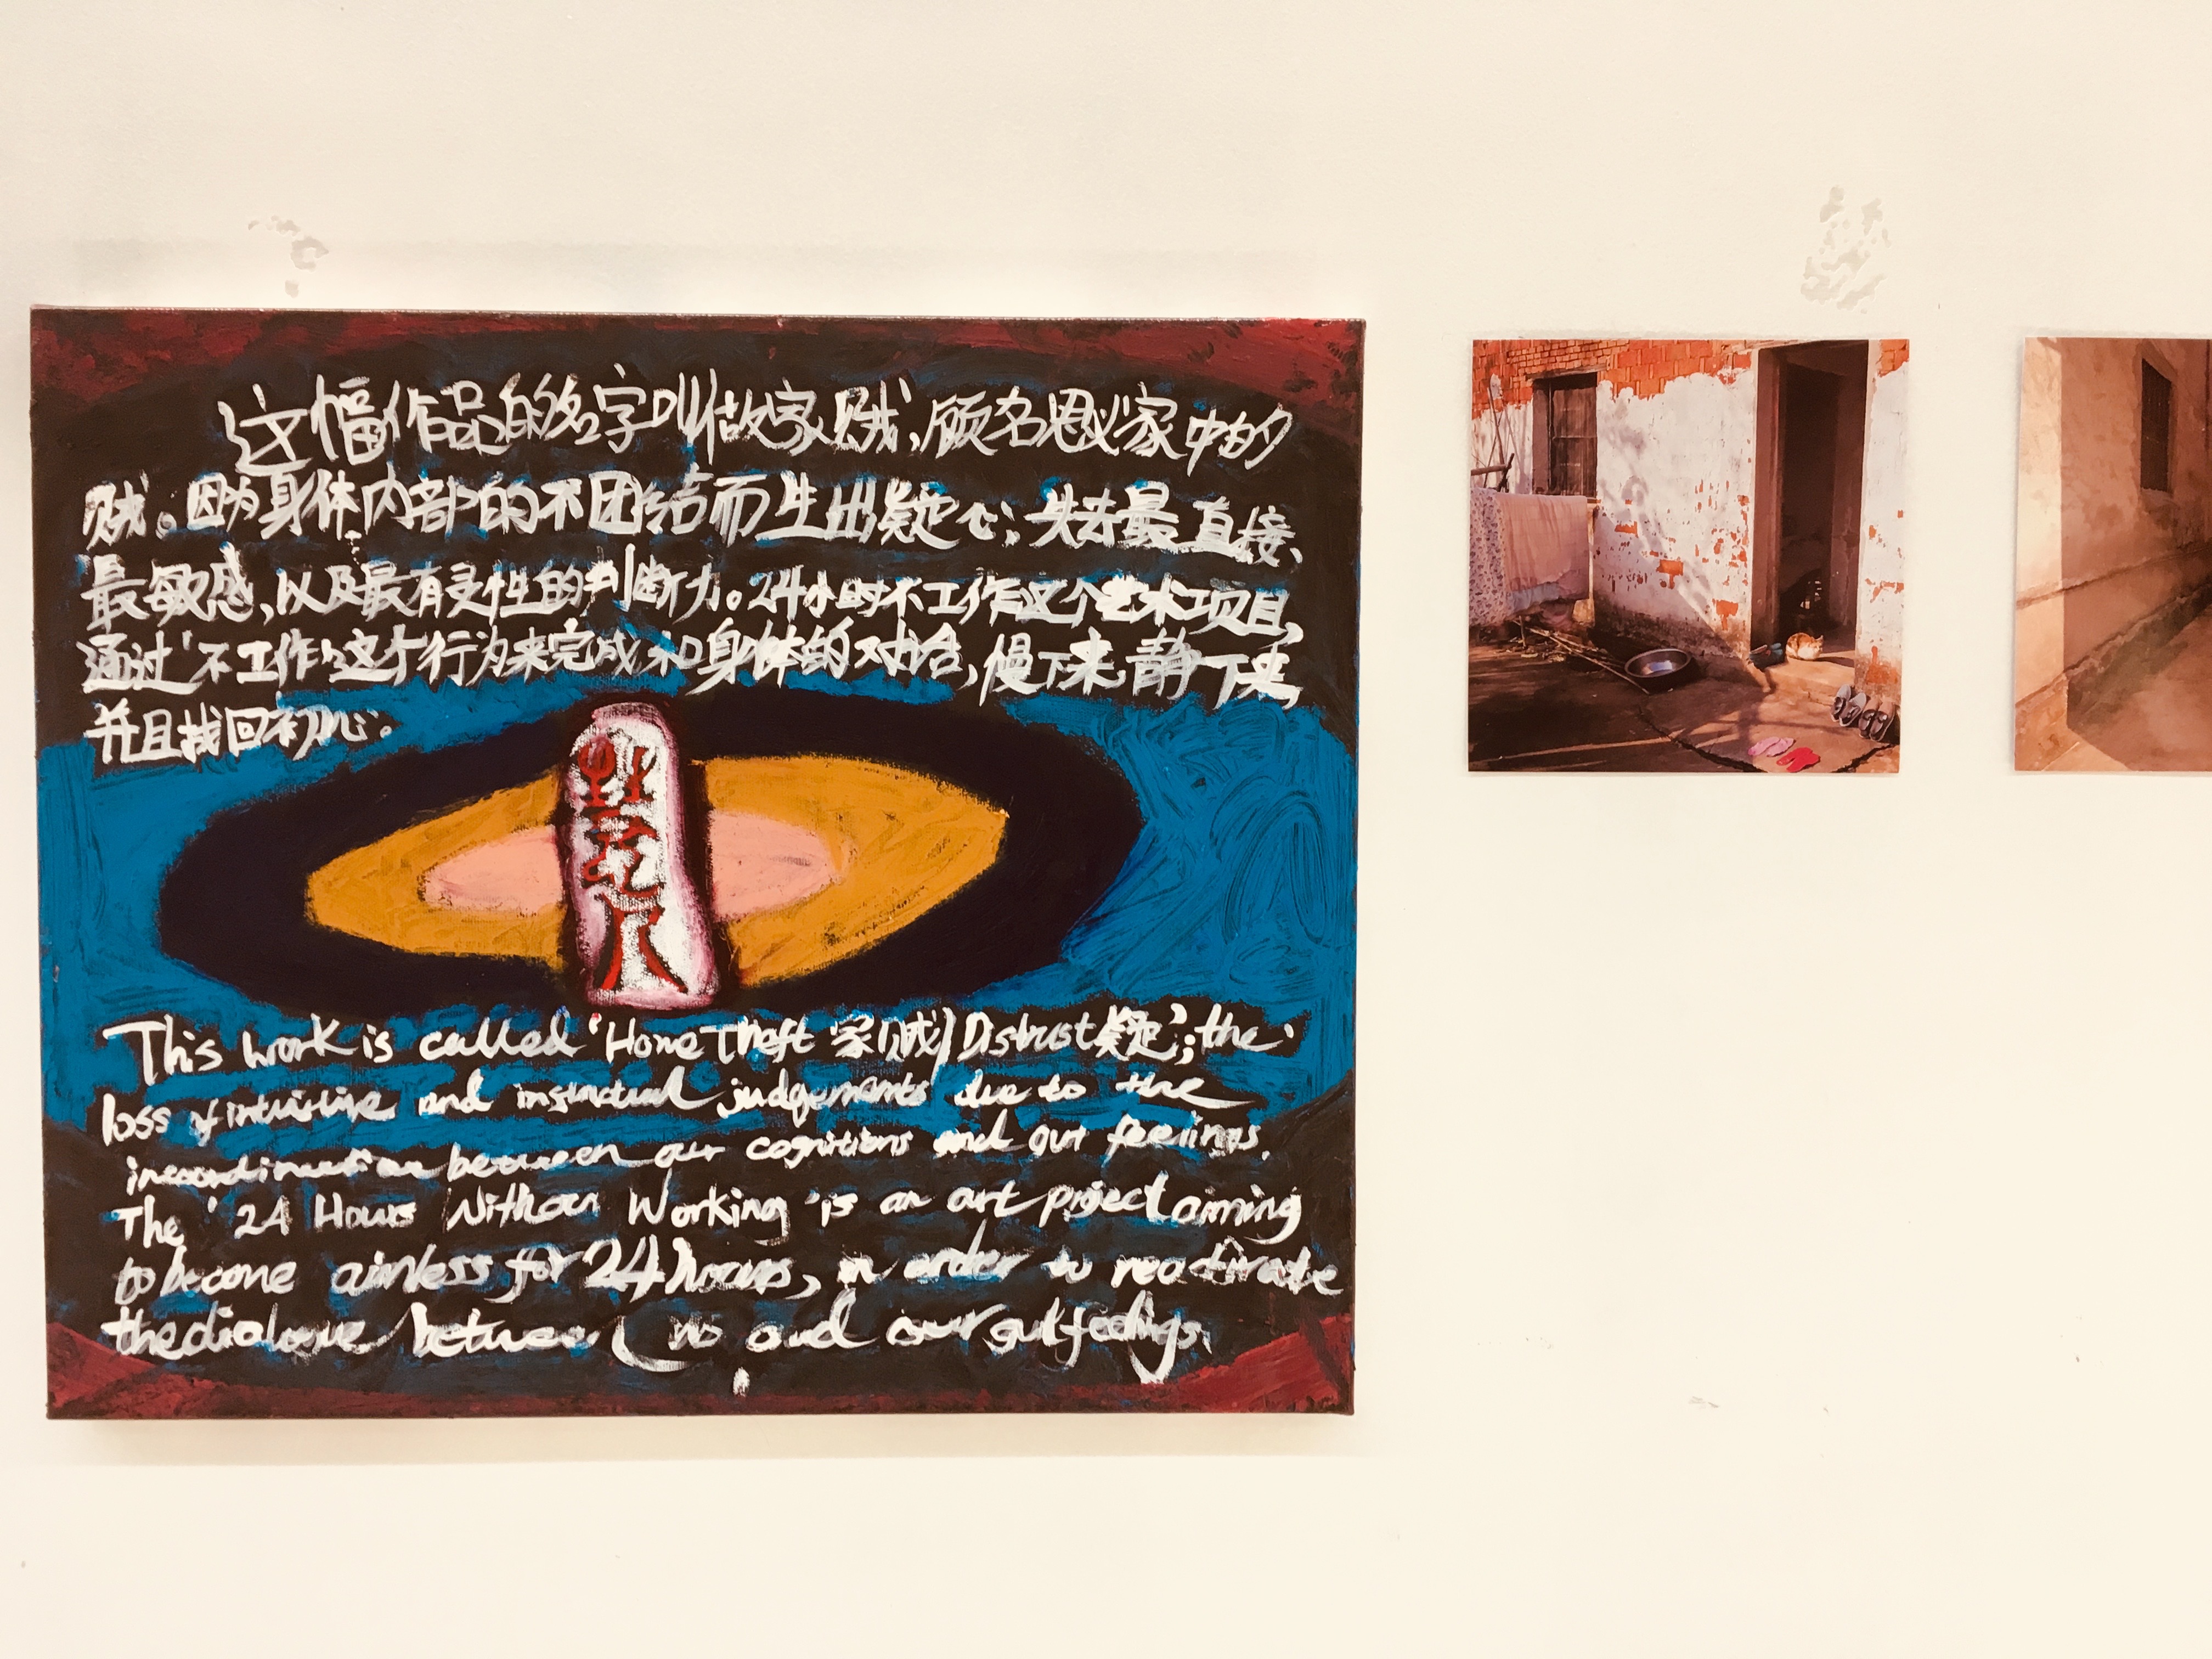 这幅作品的名字叫做家贼,顾名思义家中的
贼。因为身体内部的不团结而生出疑心;失去最直接、
最敏感,以及最有灵性的判断力。24小时不工作这个艺术项目,
通过'不工作'这个行为来完成和身体的对话,慢下来静下来,
并且找回初心。
This work is called 'Home Theft 家贼/Distrust疑'; the
loss of intuistive and instinctual judgements due to the
incoordination between our cognitions and gut feelings.
The '24 Hours Without Working' is an art project aiming
to become aimless for 24 hours, in order to reactivate
the dialogue between us and our gut feelings.